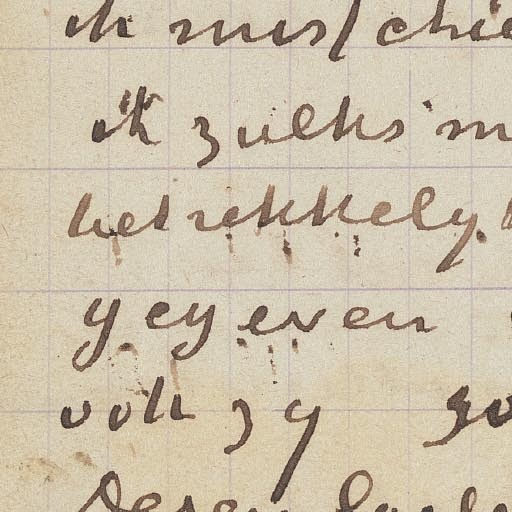 ik misschie
ik zulks m
betrekkely
gegeven
ook zy zo
Deren